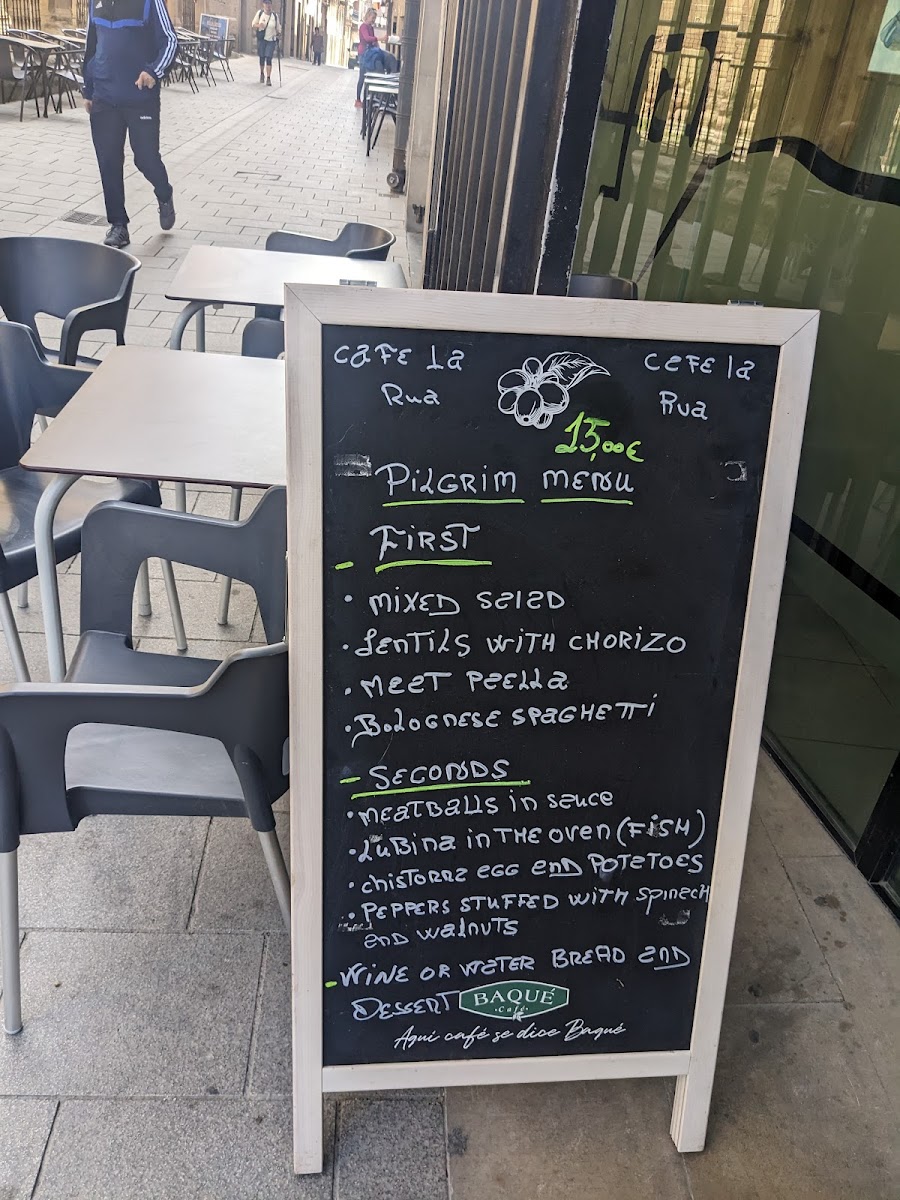 CAFE La
Rua
CAFE la
Rua
15,00€
PILGRIM MENU
FIRST
• MIXED SALAD
• LENTILS WITH CHORIZO
• MEAT PAELLA
• BOLOGNESE SPAGHETTI
- SECONDS
• MEATBALLS in sauce
• LUBINA in THE oven (FISH)
• CHISTORRA EGG AND POTATOES
• PEPPERS STUFFED WITH SPINACH
AND WALNUTS
- WINE OR WATER BREAD AND
DESSERT
BAQUÉ
Café
Aquí café se dice Baqué
adidas